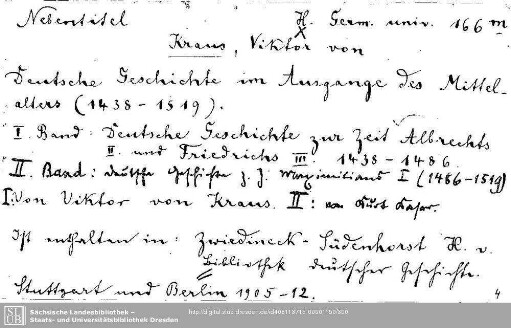 Nebentitel H. Germ. univ. 166 m
X
Kraus, Viktor von
Deutsche Geschichte im Ausgange des Mittel-
alters (1438-1519).
I. Band: Deutsche Geschichte zur Zeit Albrechts
II. und Friedrichs III. 1438-1486.
II. Band: deutsche Geschichte z. Z. Maximilians I (1486-1519)
I: Von Viktor von Kraus. II: von Kurt Kaser.
Ist enthalten in: Zwiedineck-Südenhorst H. v.
Bibliothek deutscher Geschichte.
Stuttgart und Berlin 1905-12.
Sächsische Landesbibliothek –
Staats- und Universitätsbibliothek Dresden